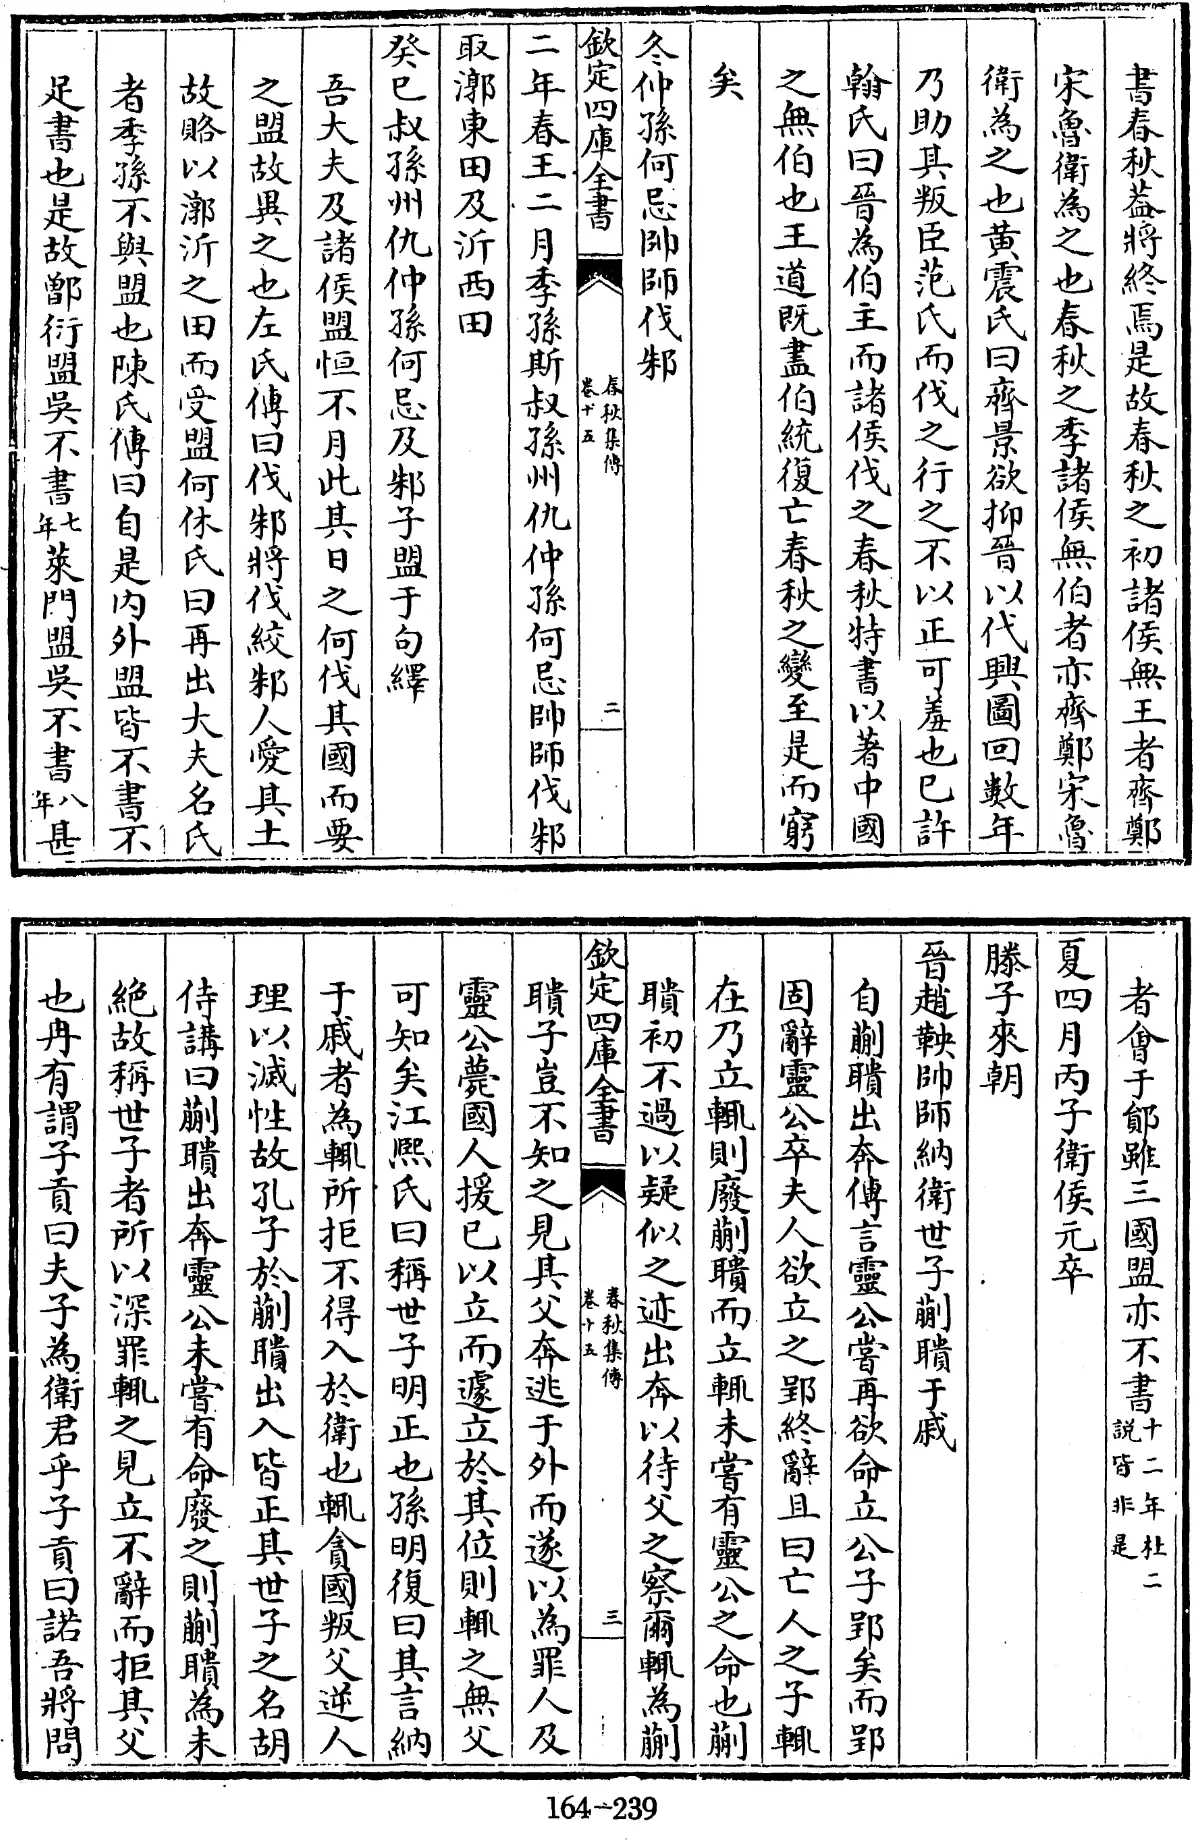 書春秋葢將終焉是故春秋之初諸侯無王者齊鄭
宋魯衛為之也春秋之季諸侯無伯者亦齊鄭宋魯
衛為之也黄震氏曰齊景欲抑晉以代興圖回數年
乃助其叛臣范氏而伐之行之不以正可羞也已許
翰氏曰晉為伯主而諸侯伐之春秋特書以著中國
之無伯也王道既盡伯統復亡春秋之變至是而窮
矣
冬仲孫何忌帥師伐邾
欽定四庫全書
春秋集傳
卷十五
二
二年春王二月季孫斯叔孫州仇仲孫何忌帥師伐邾
取漷東田及沂西田
癸巳叔孫州仇仲孫何忌及邾子盟于句繹
吾大夫及諸侯盟恒不月此其日之何伐其國而要
之盟故異之也左氏傳曰伐邾將伐絞邾人愛其土
故賂以漷沂之田而受盟何休氏曰再出大夫名氏
者季孫不與盟也陳氏傳曰自是内外盟皆不書不
足書也是故鄫衍盟吳不書七年萊門盟吳不書八年甚
者會于鄖雖三國盟亦不書十二年杜二說皆非是
夏四月丙子衛侯元卒
滕子來朝
晉趙鞅帥師納衛世子蒯聵于戚
自蒯聵出奔傳言靈公嘗再欲命立公子郢矣而郢
固辭靈公卒夫人欲立之郢終辭且曰亡人之子輒
在乃立輒則廢蒯聵而立輒未嘗有靈公之命也蒯
聵初不過以疑似之迹出奔以待父之察爾輒為蒯
欽定四庫全書
春秋集傳
卷十五
三
聵子豈不知之見其父奔逃于外而遂以為罪人及
靈公薨國人援已以立而遽立於其位則輒之無父
可知矣江熙氏曰稱世子明正也孫明復曰其言納
于戚者為輒所拒不得入於衛也輒貪國叛父逆人
理以滅性故孔子於蒯聵出入皆正其世子之名胡
侍講曰蒯聵出奔靈公未嘗有命廢之則蒯聵為未
絶故稱世子者所以深罪輒之見立不辭而拒其父
也冉有謂子貢曰夫子為衛君乎子貢曰諾吾將問
164-239